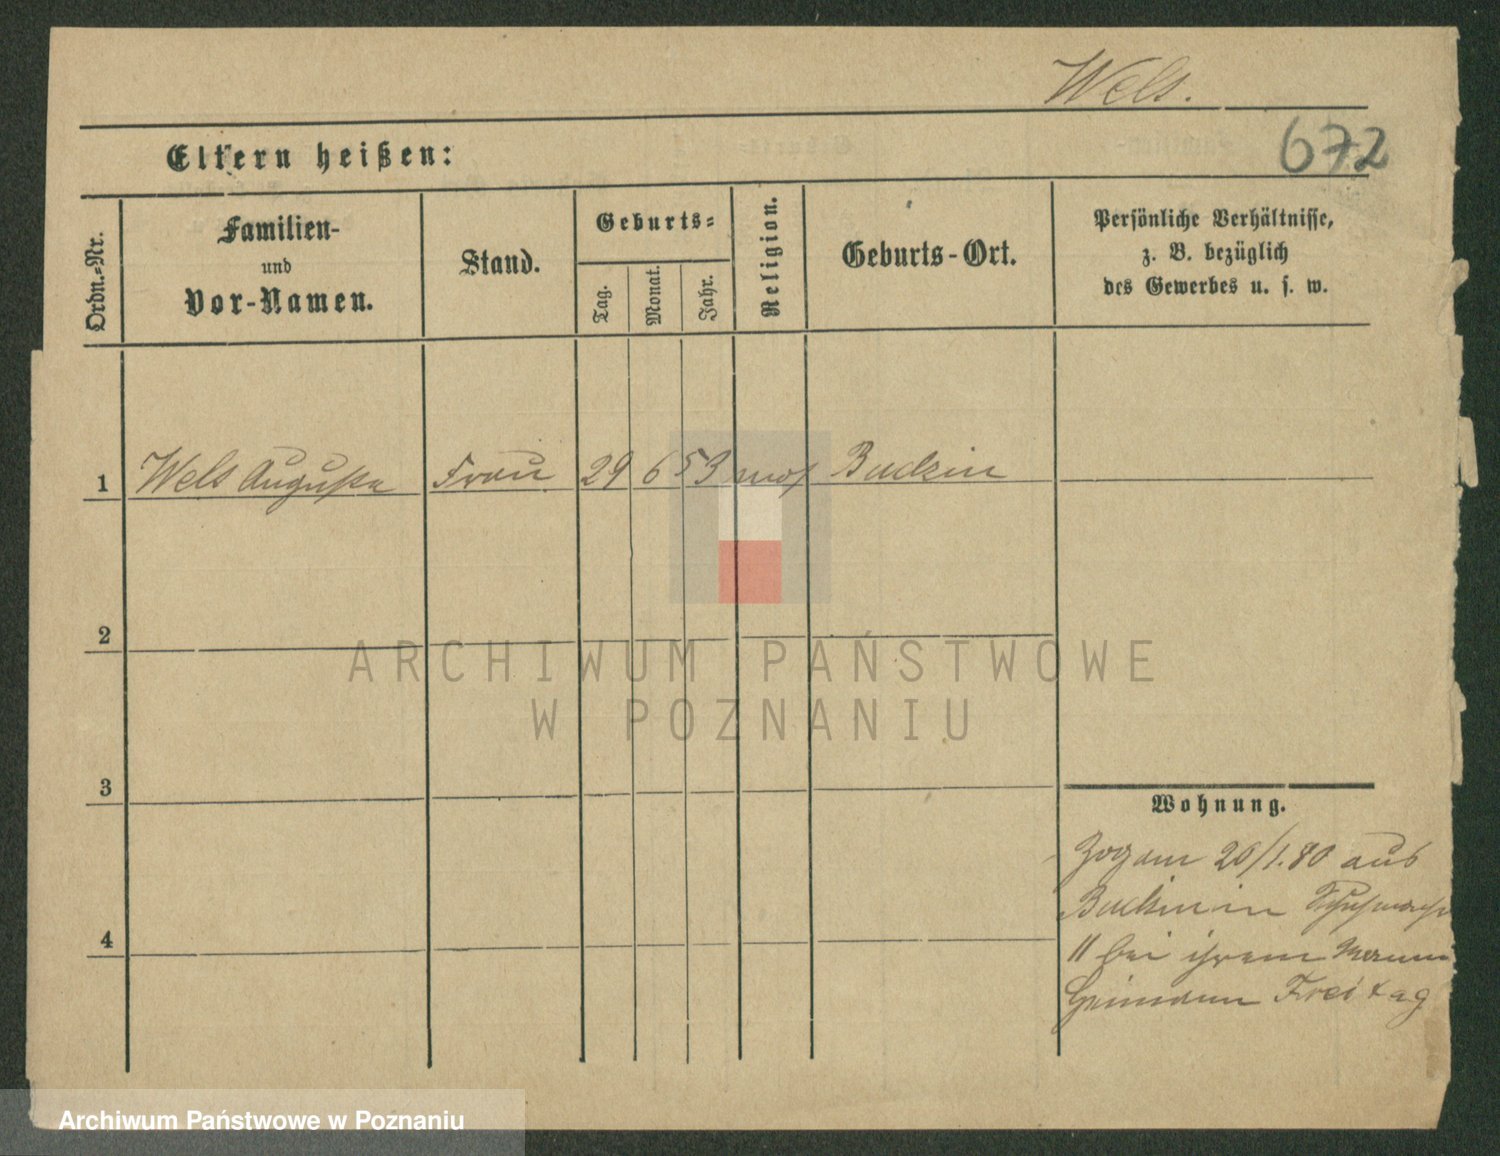 Wels.
672
Eltern heißen:
Ordn.-Nr.
Familien-
und
Vor-Namen.
Stand.
Geburts-
Tag.
Monat.
Jahr.
Religion.
Geburts-Ort.
Persönliche Verhältnisse,
z. B. bezüglich
des Gewerbes u. s. w.
1 Wels Auguste Frau 29 6 53 mos Buckin
2
3
4
Wohnung.
Zogam 26/1.80 aus
Buckin in
11 bei ihrem Mann
Freitag
ARCHIWUM PAŃSTWOWE
W POZNANIU
Archiwum Państwowe w Poznaniu